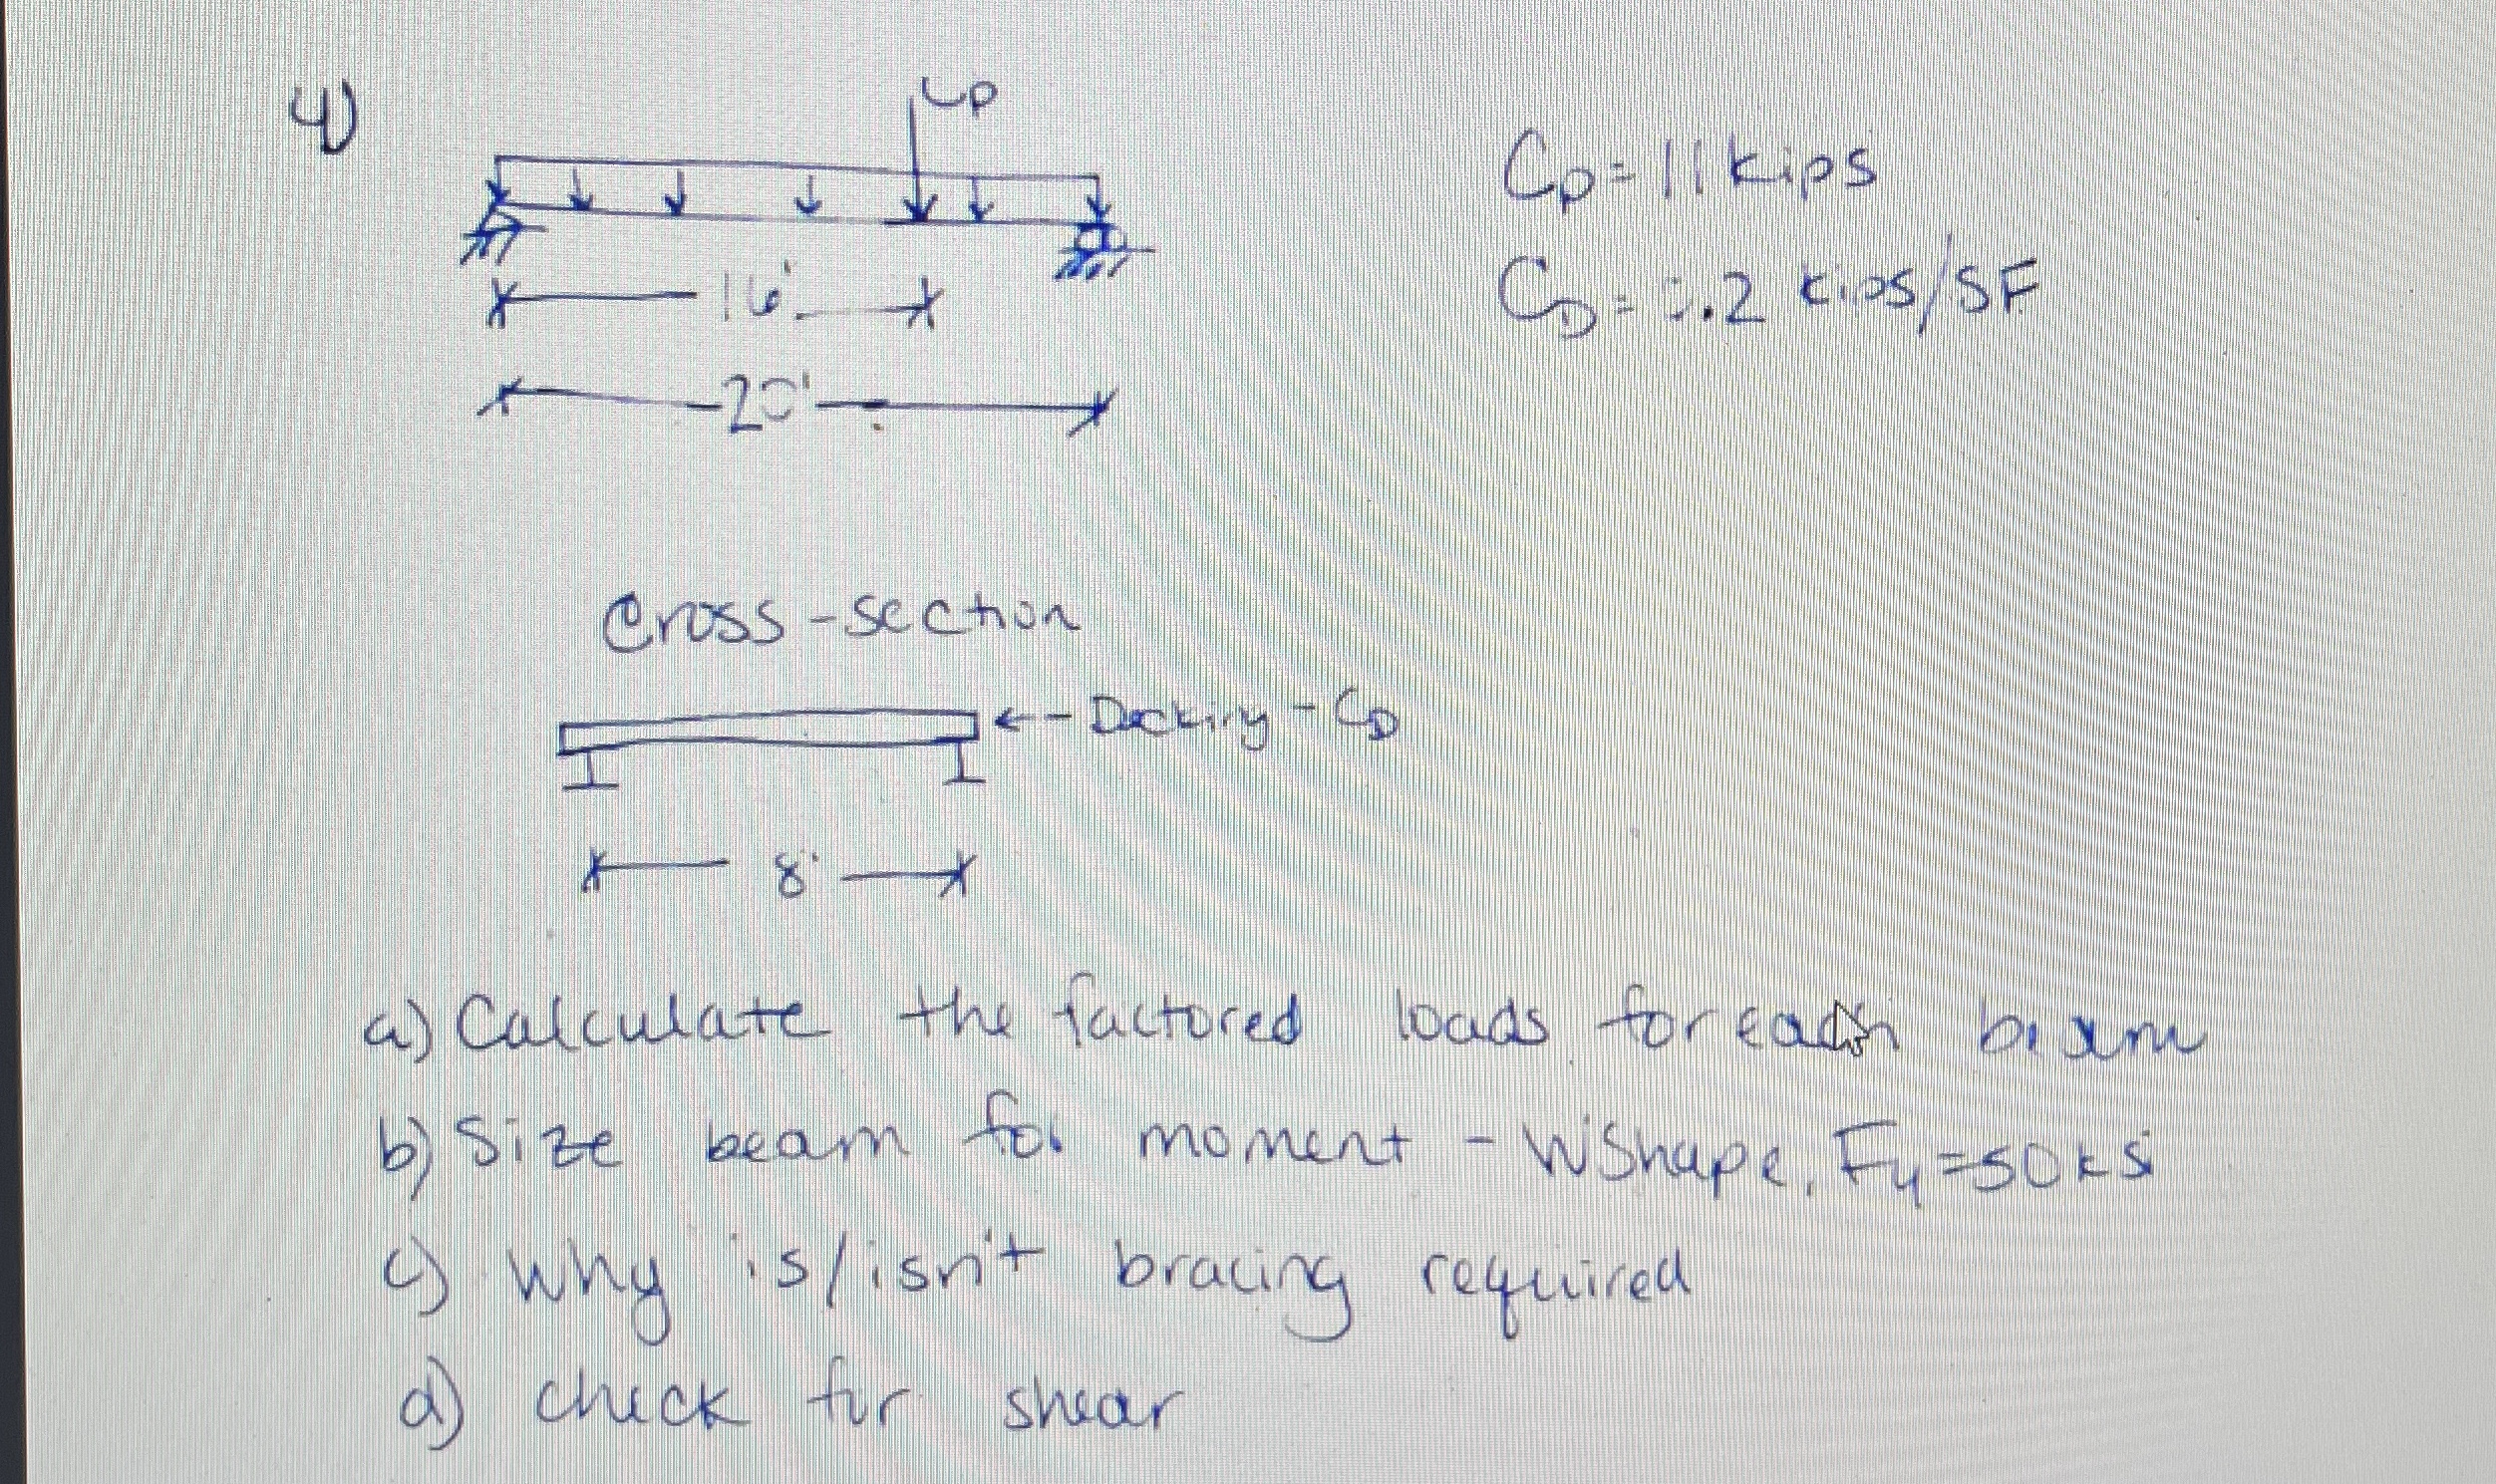 4)
CP
CP = 11 kips
CD = 0.2 kips/SF
16'
20'
Cross-section
Decking - CD
8'
a) Calculate the factored loads for each beam
b) Size beam for moment - WShape, Fy=50ksi
c) Why is/isn't bracing required
d) check for shear